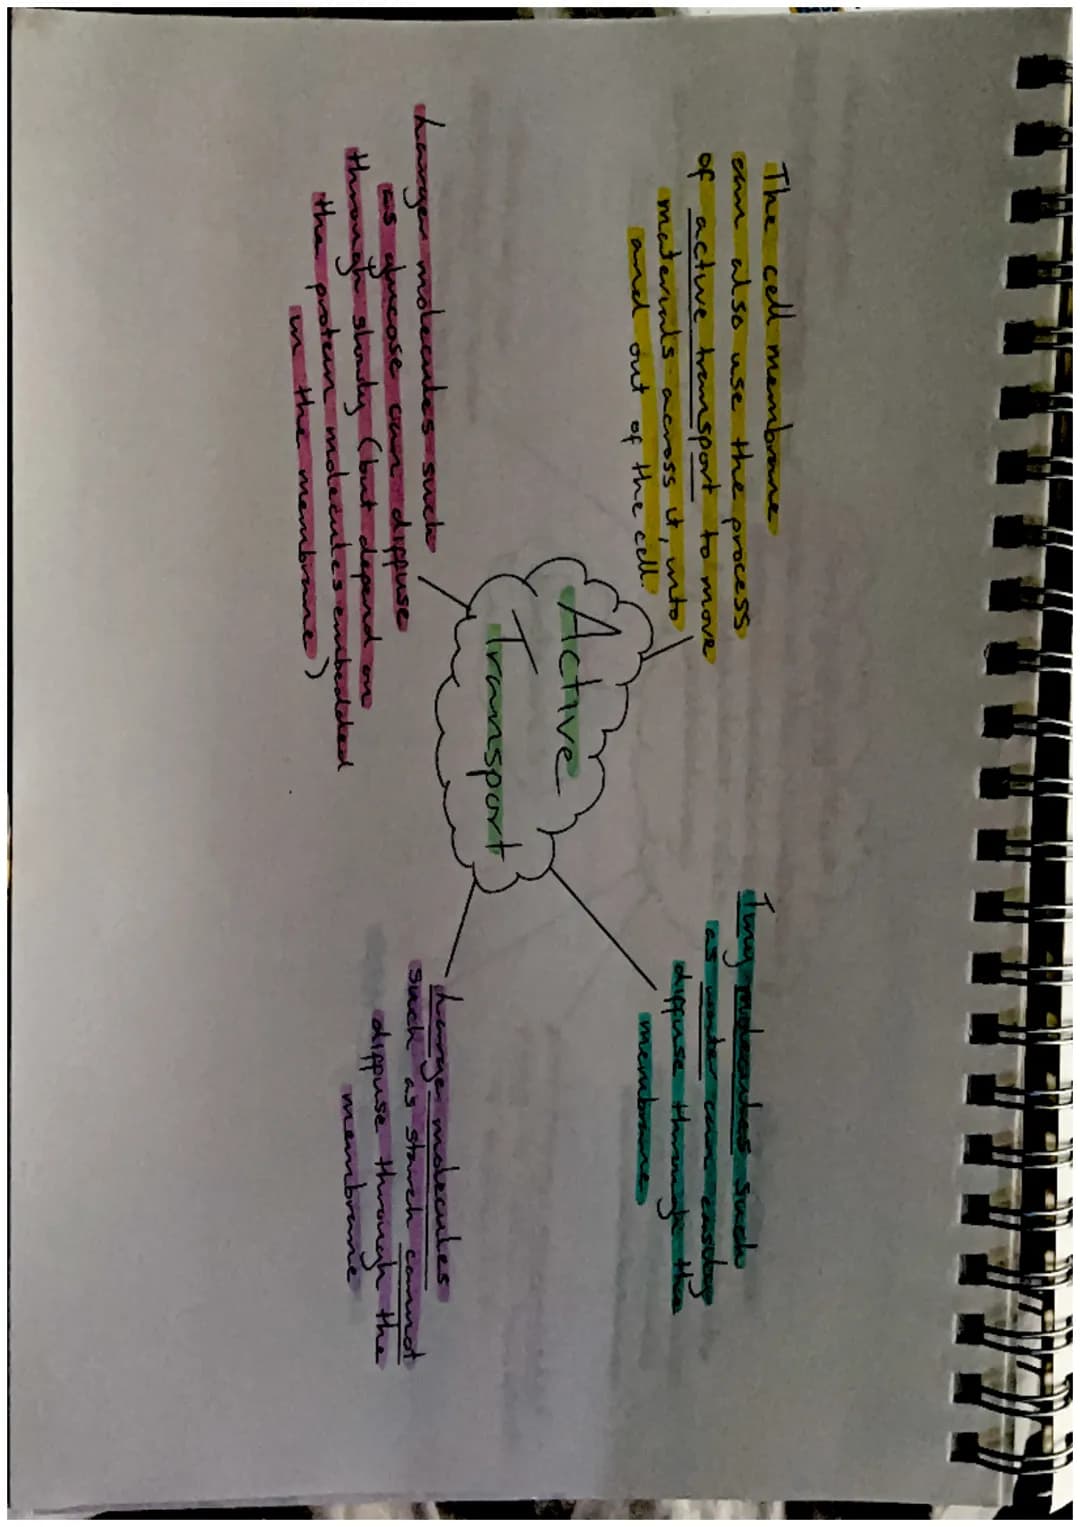 The cell membrane
can also use the process
of active transport to move
materials across it, into
and out of the cell.
Tiny molecules such
as water can easily
diffuse through the
membrane
Active
Transport
Larger molecules such
as glucose can diffuse
through slowly (but depend on
the protein molecules embedded
in the membrane)
Large molecules
such as starch cannot
diffuse through the
membrane